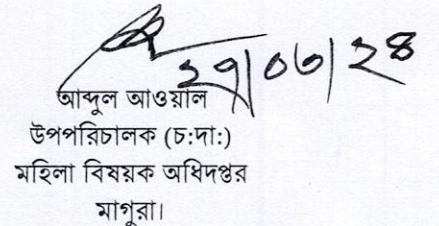 ২৭/০৬/২৪
আব্দুল আওয়াল
উপপরিচালক (চ:দা:)
মহিলা বিষয়ক অধিদপ্তর
মাগুরা।